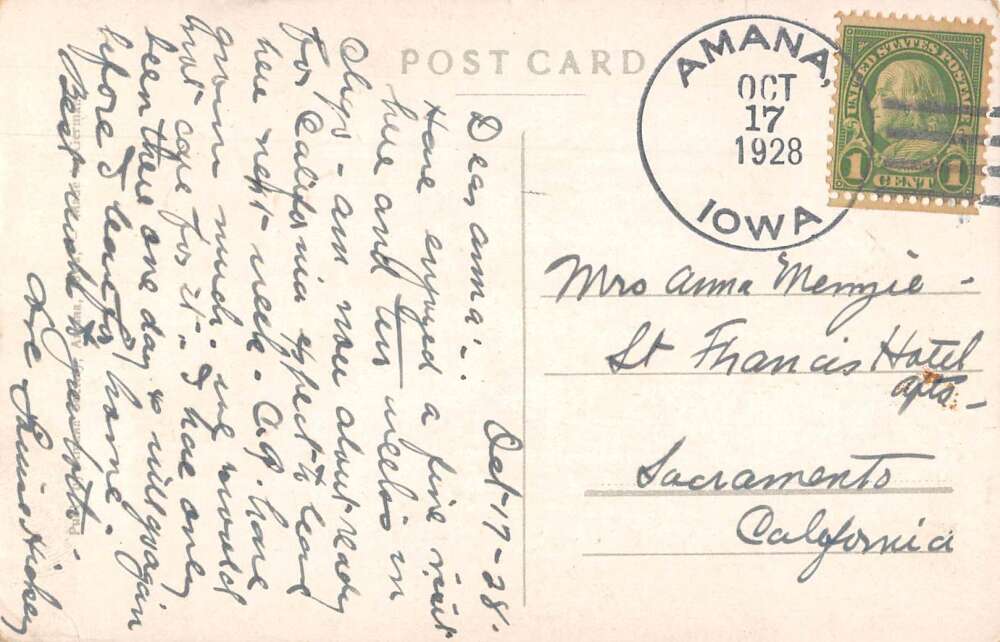 POST CARD
AMANA,
OCT
17
1928
IOWA
UNITED STATES POSTAGE
1 CENT 1
Mrs Anna Menzie -
St Francis Hotel
apts -
Sacramento
California
Oct-17-28.
Dear Anna:-
Have enjoyed a fine visit
here and two weeks in
Chgo - am now about ready
for California expect to leave
here next week - Chg. have
grown much. we would
not care for it - I have only
been there one day & will go again
before I leave for home.
Best wish to you both.
Louise Hickey